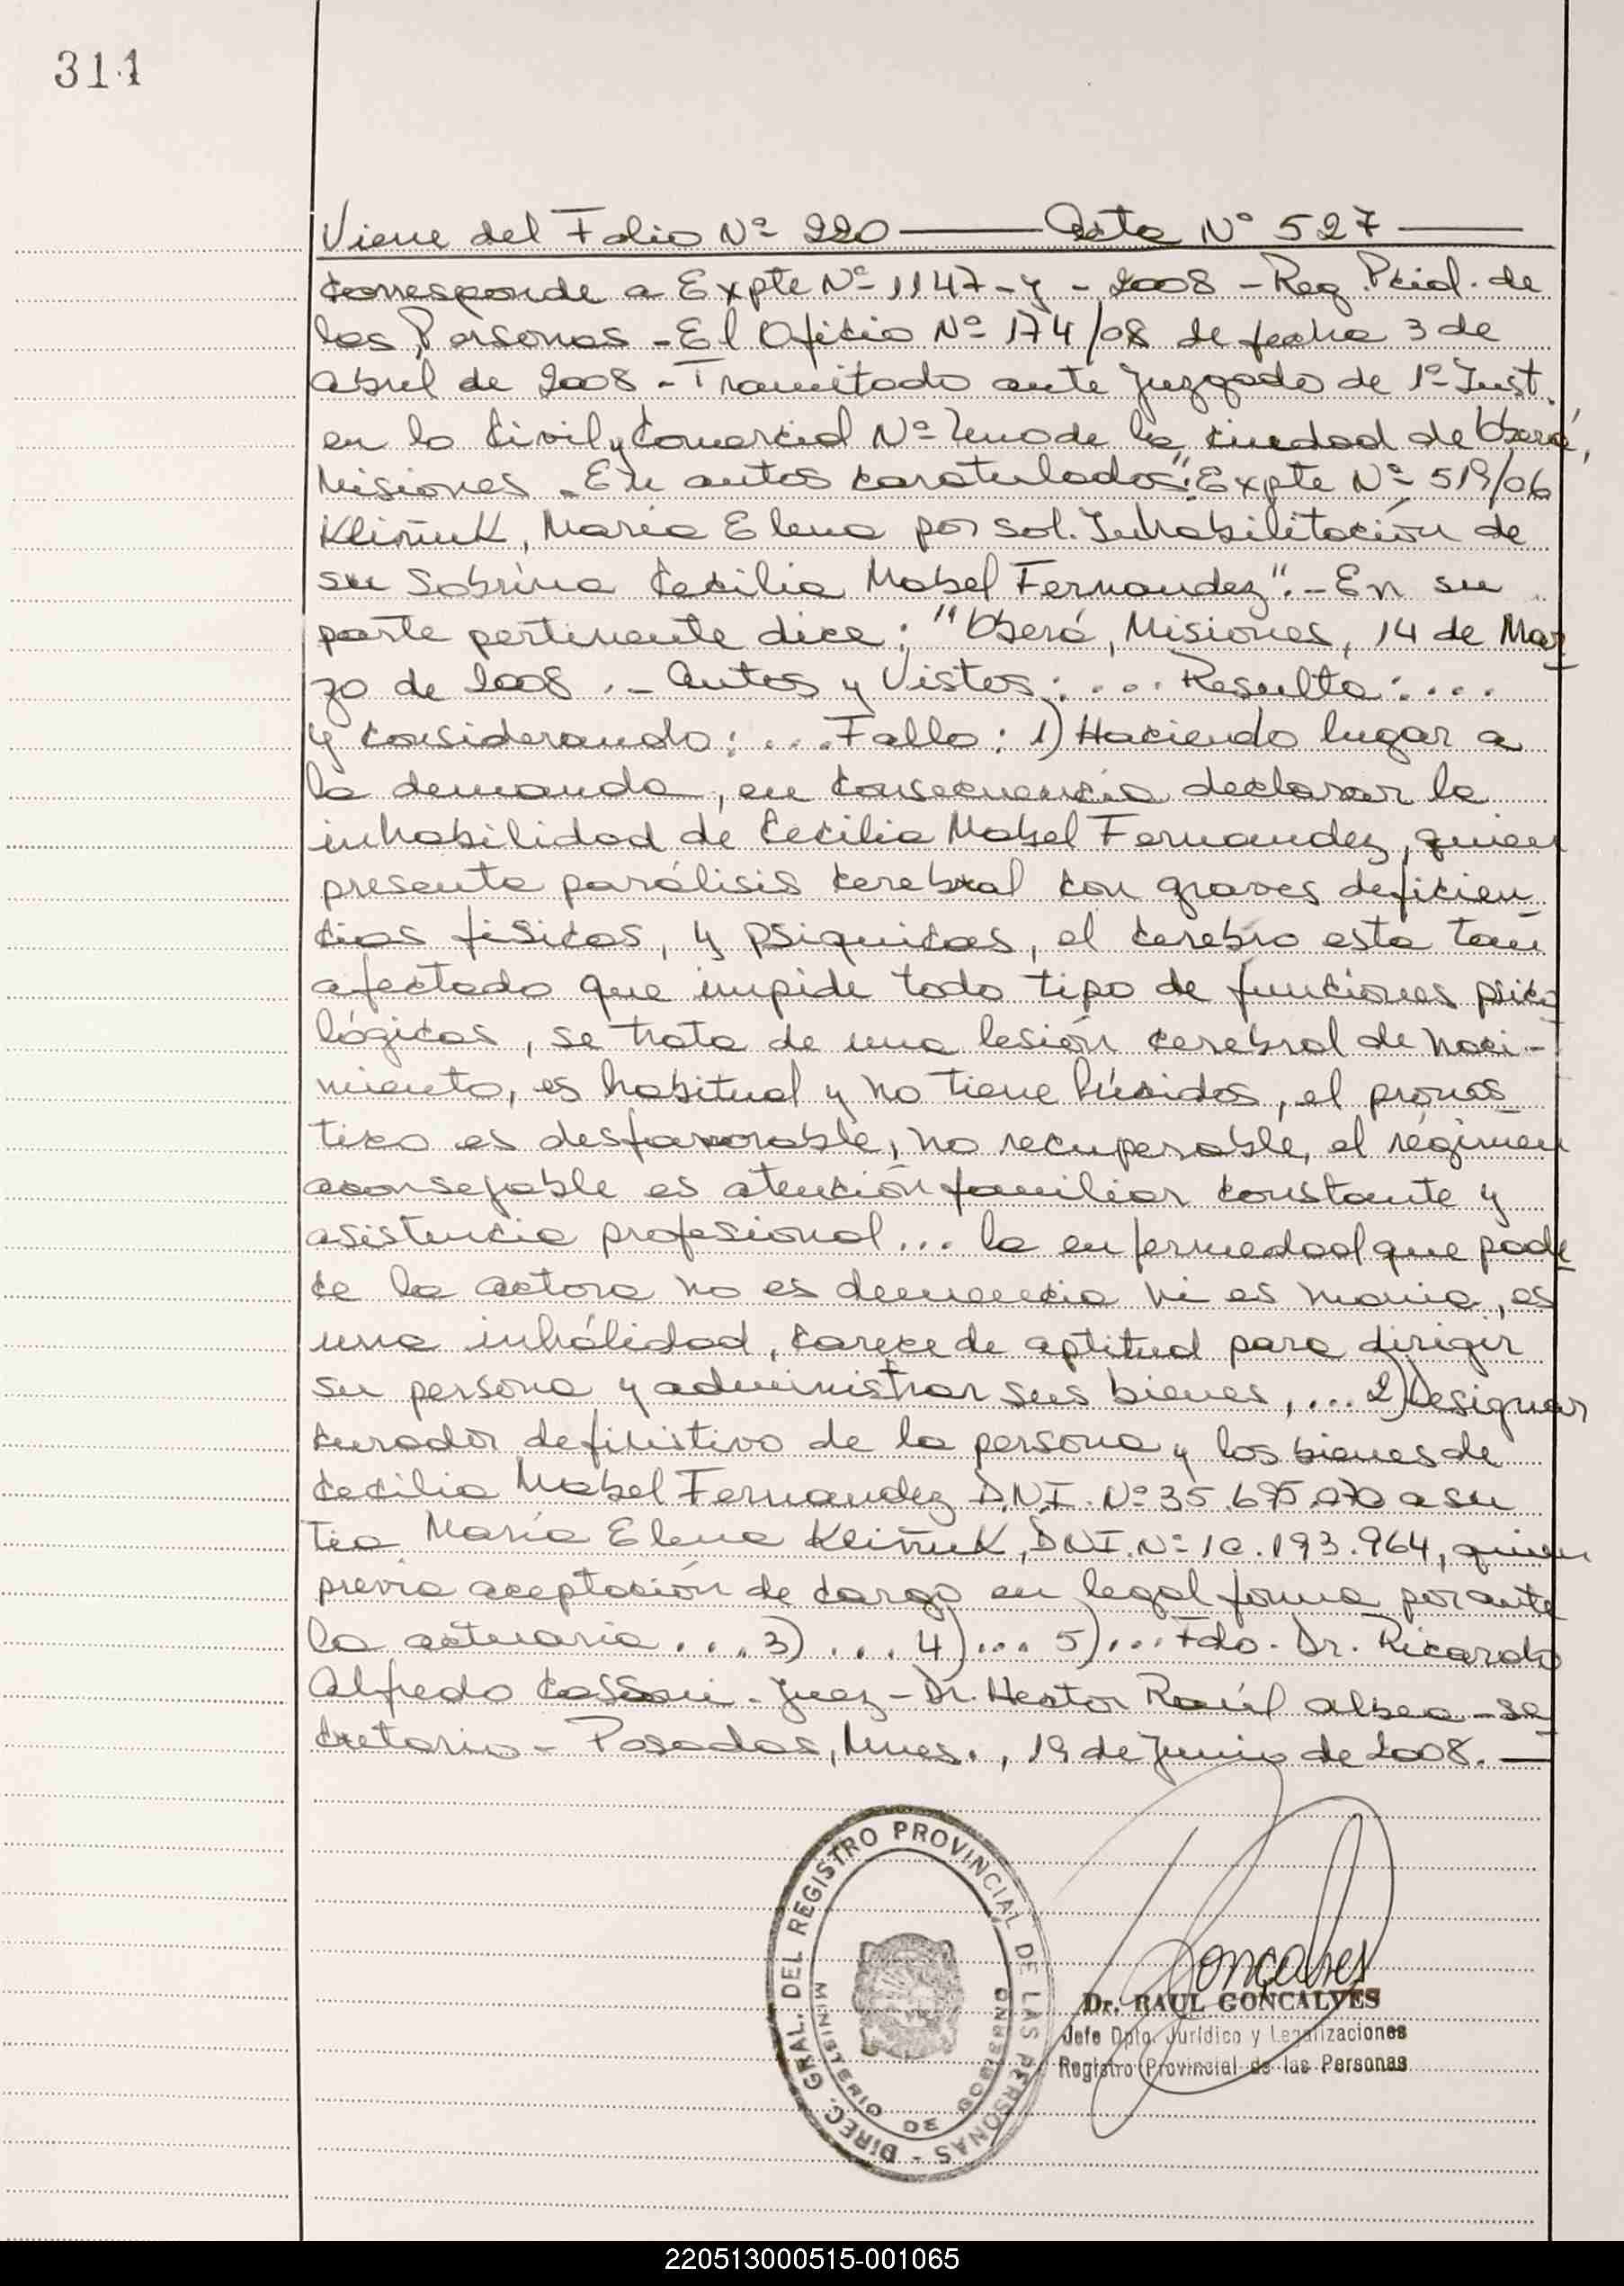 311
Viene del Folio Nº 220 —— Acta Nº 527 ——
Corresponde a Expte Nº 1147-y-2008 - Reg. Pcial. de
las Personas - El Oficio Nº 174/08 de fecha 3 de
abril de 2008 - Tramitado ante Juzgado de 1º Inst.
en lo Civil y Comercial Nº Uno de la ciudad de Oberá,
Misiones - En autos caratulados: "Expte Nº 519/06
Kliñuk, María Elena por sol. Inhabilitación de
su Sobrina Cecilia Mabel Fernandez". - En su
parte pertinente dice: "Oberá, Misiones, 14 de Mar
zo de 2008 .- Autos y Vistos: .... Resulta: ....
y considerando: .... Fallo: 1) Haciendo lugar a
la demanda, en consecuencia declarar la
inhabilidad de Cecilia Mabel Fernandez, quien
presenta parálisis cerebral con graves deficien
cias fisicas, y psiquicas, el cerebro esta tan
afectado que impide todo tipo de funciones psico
lógicas, se trata de una lesión cerebral de naci-
miento, es habitual y no tiene lúcidos, el pronos
tico es desfavorable, no recuperable, el régimen
aconsejable es atención familiar constante y
asistencia profesional... la enfermedad que pade
ce la actora no es demencia ni es mania, es
una inhálidad, carece de aptitud para dirigir
su persona y administrar sus bienes, ... 2) Designar
curador definistivo de la persona y los bienes de
Cecilia Mabel Fernandez D.N.I. Nº 35.695.070 a su
tia María Elena Kliñuk, D.N.I. Nº 10.193.964, quien
previa aceptación de cargo en legal forma por ante
la actuaria .... 3) .... 4) .... 5) ... Fdo. Dr. Ricardo
Alfredo Cassoni - Juez - Dr. Hector Raúl Albea - se
cretario - Posadas, Mnes., 19 de Junio de 2008. —
DIREC. GRAL. DEL REGISTRO PROVINCIAL DE LAS PERSONAS -
MINISTERIO DE GOBIERNO
Gonçalves
Dr. RAUL GONCALVES
Jefe Dpto. Jurídico y Legalizaciones
Registro Provincial de las Personas
220513000515-001065